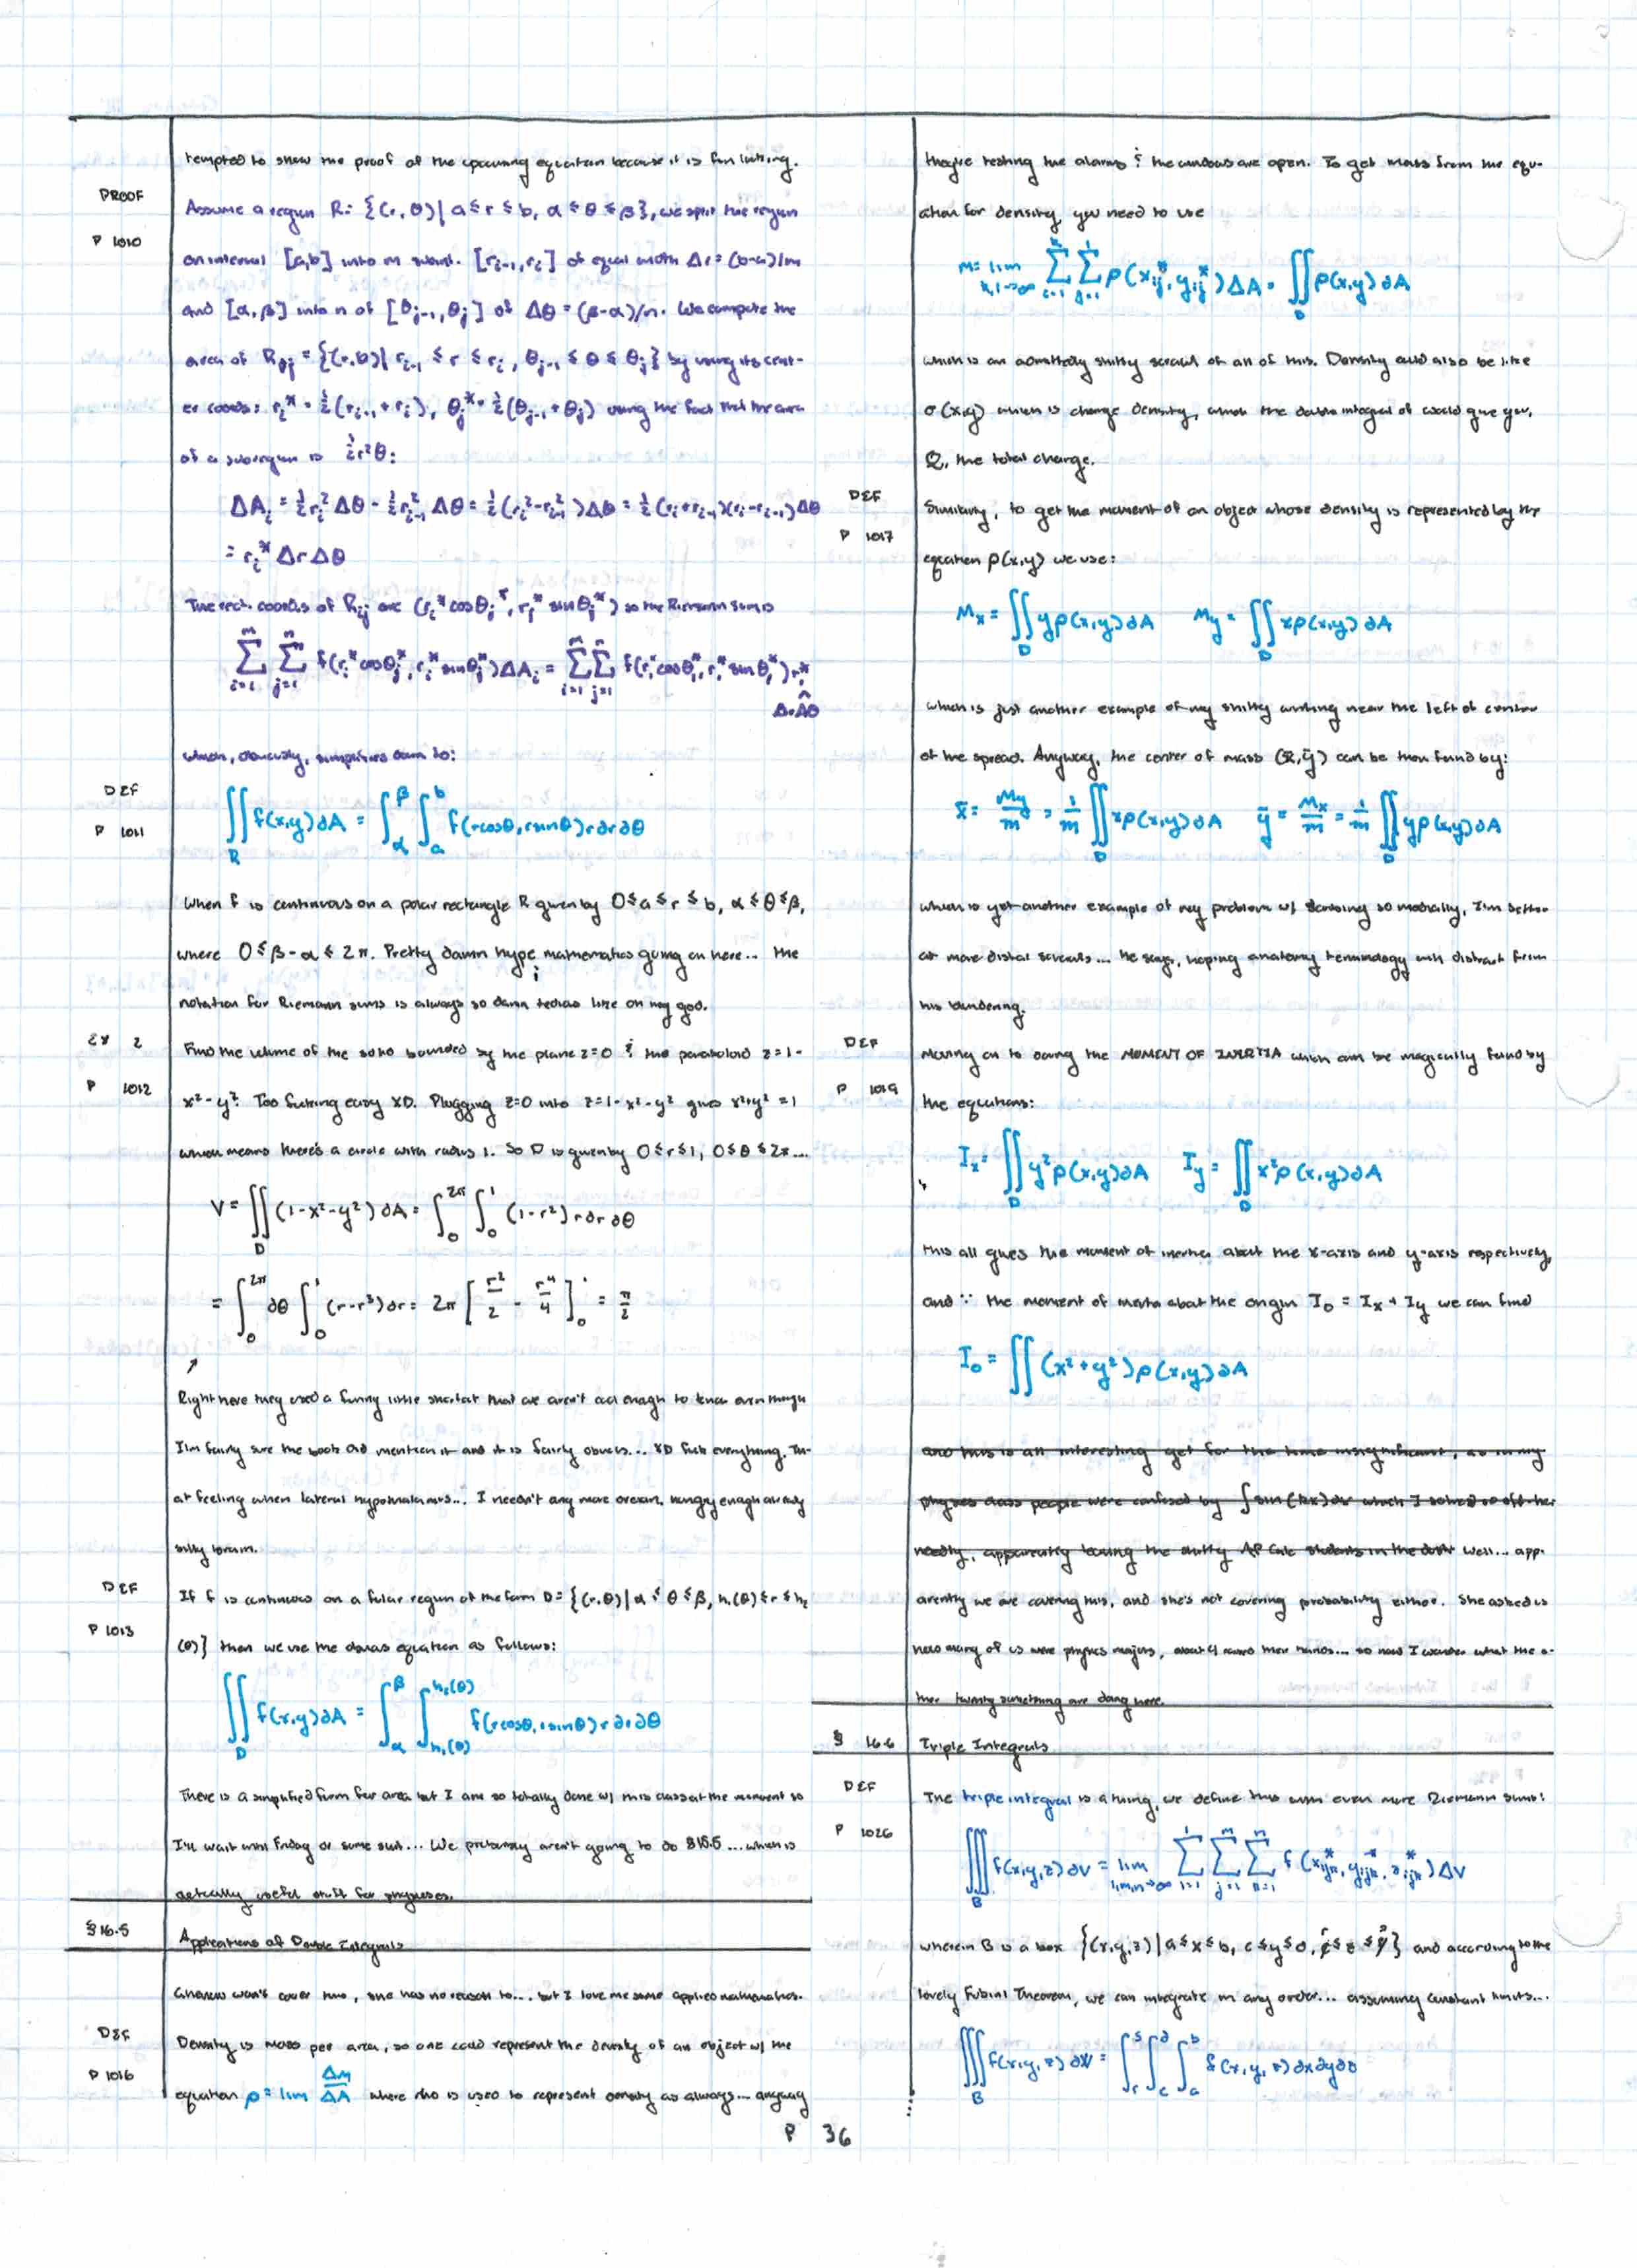 tempted to show the proof of the upcoming equation because it is fun lurking.
PROOF
Assume a region R: {(r, θ)| a ≤ r ≤ b, α ≤ θ ≤ β}, we split the region
P 1010
on interval [a,b] into m subint. [r_{i-1}, r_i] of equal width Δr = (b-a)/m
and [α, β] into n of [θ_{j-1}, θ_j] of Δθ = (β-α)/n. We compute the
area of R_{ij} = {(r,θ)| r_{i-1} ≤ r ≤ r_i, θ_{j-1} ≤ θ ≤ θ_j} by using its cent-
er coords: r_i* = ½(r_{i-1} + r_i), θ_j* = ½(θ_{j-1} + θ_j) using the fact that the area
of a subregion is ½r²θ:
ΔA_i = ½r_i² Δθ - ½r_{i-1}² Δθ = ½(r_i² - r_{i-1}²)Δθ = ½(r_i + r_{i-1})(r_i - r_{i-1})Δθ
= r_i* Δr Δθ
The rect. coords of R_{ij} are (r_i* cosθ_j*, r_i* sinθ_j*) so the Riemann sum is
∑_{i=1}^m ∑_{j=1}^n f(r_i* cosθ_j*, r_i* sinθ_j*)ΔA_i = ∑_{i=1}^m ∑_{j=1}^n f(r_i* cosθ_i*, r_i* sinθ_i*) r_i*
ΔrΔθ
which, obviously, simplifies down to:
DEF
P 1011
∬_R f(x,y)∂A = ∫_α^β ∫_a^b f(rcosθ, rsinθ)r∂r∂θ
When f is continuous on a polar rectangle R given by 0 ≤ a ≤ r ≤ b, α ≤ θ ≤ β,
where 0 ≤ β - α ≤ 2π. Pretty damn hype mathematics going on here.. the
notation for Riemann sums is always so damn tedious like oh my god.
EX 2
Find the volume of the solid bounded by the plane z=0 & the paraboloid z = 1 -
P 1012
x² - y². Too fucking easy XD. Plugging z=0 into z = 1 - x² - y² gives x² + y² = 1
which means there's a circle with radius 1. So D is given by 0 ≤ r ≤ 1, 0 ≤ θ ≤ 2π...
V = ∬_D (1 - x² - y²)∂A = ∫_0^{2π} ∫_0^1 (1 - r²)r∂r∂θ
= ∫_0^{2π} ∂θ ∫_0^1 (r - r³)∂r = 2π [r²/2 - r⁴/4]_0^1 = π/2
↗
Right here they used a funny little shortcut that we aren't cool enough to know even though
I'm fairly sure the book did mention it and it is fairly obvious... XD fuck everything. Th-
at feeling when lateral hypothalamus... I needn't any more orexin, hungry enough already
silly brain.
DEF
If f is continuous on a polar region of the form D = {(r,θ)| α ≤ θ ≤ β, h_1(θ) ≤ r ≤ h_2
P 1013
(θ)} then we use the equation as follows:
∬_D f(x,y)∂A = ∫_α^β ∫_{h_1(θ)}^{h_2(θ)} f(rcosθ, rsinθ)r∂r∂θ
There is a simplified form for area but I am so totally done w/ this class at the moment so
I'll wait until Friday or some such... We probably aren't going to do §16.5... which is
actually useful stuff for physicists.
§16.5
Applications of Double Integrals
won't cover this, she has no reason to... but I love me some applied mathematics.
DEF
Density is mass per area, so one could represent the density of an object w/ the
P 1016
equation ρ = lim Δm/ΔA where rho is used to represent density as always... anyway
they're testing the alarms & the windows are open. To get mass from the equ-
ation for density, you need to use
m = lim_{k,l→∞} ∑_{i=1}^k ∑_{j=1}^l ρ(x_{ij}*, y_{ij}*)ΔA = ∬_D ρ(x,y)∂A
which is an admittedly shitty scrawl of all of this. Density could also be like
σ(x,y) which is charge density, which the double integral of would give you,
Q, the total charge.
DEF
Similarly, to get the moment of an object whose density is represented by the
P 1017
equation ρ(x,y) we use:
M_x = ∬_D yρ(x,y)∂A M_y = ∬_D xρ(x,y)∂A
which is just another example of my shitty writing near the left of center
of the spread. Anyway, the center of mass (x̄,ȳ) can be then found by:
x̄ = M_y/m = 1/m ∬_D xρ(x,y)∂A ȳ = M_x/m = 1/m ∬_D yρ(x,y)∂A
which is yet another example of my problem w/ so medially, I'm better
at more distal scrawls... he says, hoping anatomy terminology will distract from
his blundering.
DEF
Moving on to doing the MOMENT OF INERTIA which can be magically found by
P 1019
the equations:
I_x = ∬_D y²ρ(x,y)∂A I_y = ∬_D x²ρ(x,y)∂A
this all gives the moment of inertia about the x-axis and y-axis respectively,
and ∵ the moment of inertia about the origin I_0 = I_x + I_y we can find
I_0 = ∬ (x² + y²)ρ(x,y)∂A
and this is all interesting yet for the time insignificant, as in my
physics class people were confused by ∫sin(kx)∂x which I solved so off-ha
ndedly, apparently leaving the shitty AP Calc students in the dust well... app-
arently we are covering this, and she's not covering probability either. She asked us
how many of us were physics majors, about 4 raised their hands... so now I wonder what the o-
ther twenty something are doing here.
§ 16.6
Triple Integrals
DEF
The triple integral is a thing, we define this with even more Riemann sums!
P 1026
∭_B f(x,y,z)∂V = lim_{l,m,n→∞} ∑_{i=1}^l ∑_{j=1}^m ∑_{k=1}^n f(x_{ijk}*, y_{ijk}*, z_{ijk}*)ΔV
wherein B is a box {(x,y,z)| a ≤ x ≤ b, c ≤ y ≤ d, r ≤ z ≤ s} and according to the
lovely Fubini Theorem, we can integrate in any order... assuming constant limits...
∭_B f(x,y,z)∂V = ∫_r^s ∫_c^d ∫_a^b f(x,y,z)∂x∂y∂z
P 36